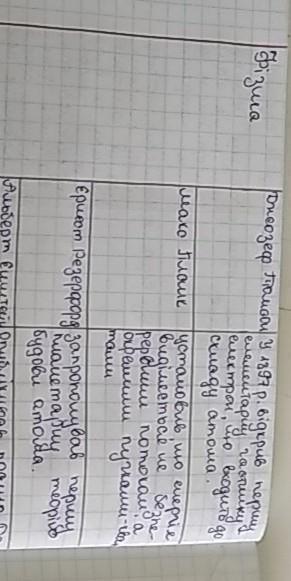 Фізика
Джозеф Томсон
У 1897 р. відкрив першу
елементарну частинку
електрон, що входить до
складу атома.
Макс Планк
установив, що енергія
виділяється не безпе-
рервним потоком, а
окремими пучками-кван
тами
Ернест Резерфорд
запропонував першу
планетарну теорію
будови атома.
Альберт Ейнштейн